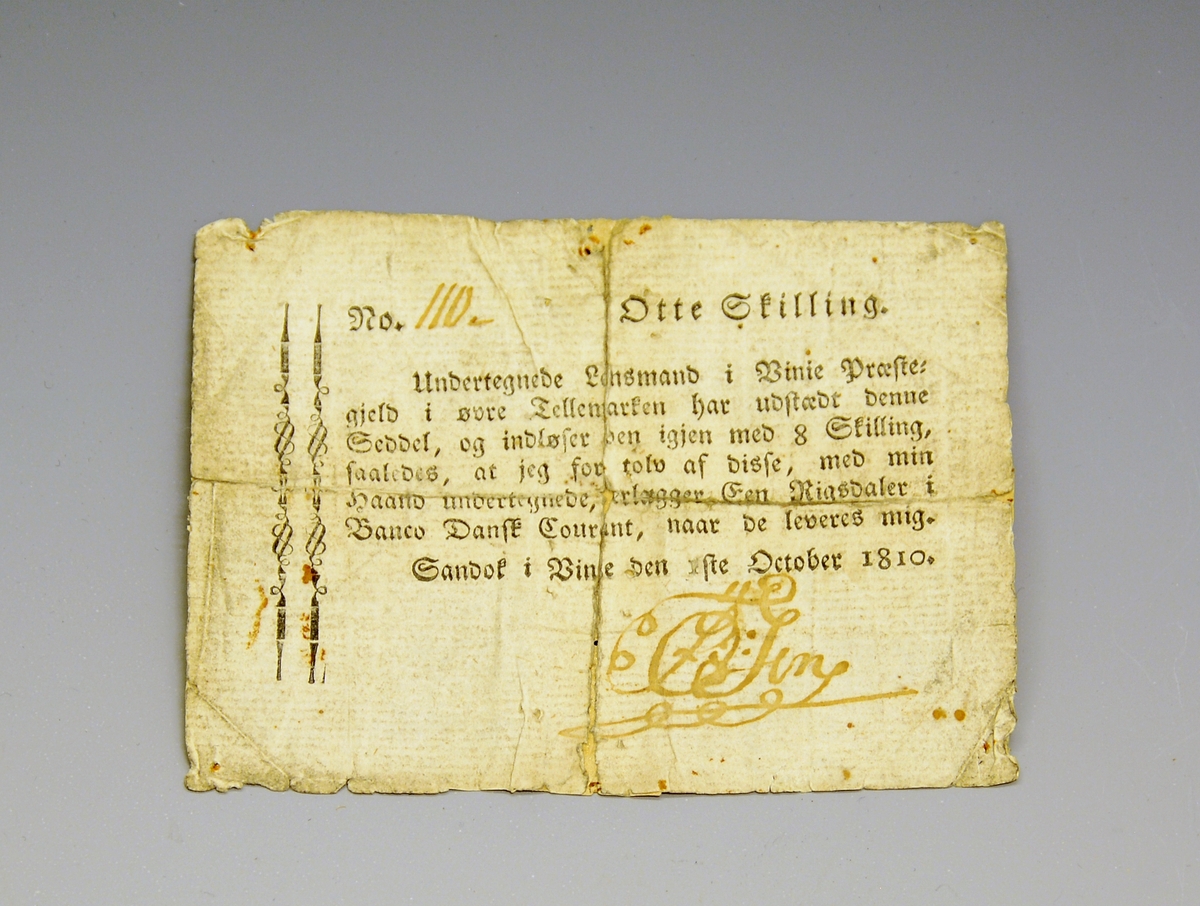 No. 110. Otte Skilling.
Undertegnede Lensmand i Vinie Præste-
gjeld i øvre Tellemarken har udstædt denne
Seddel, og indløser den igjen med 8 Skilling,
saaledes, at jeg for tolv af disse, med min
Haand undertegnede, erlægger Een Rigsdaler i
Banco Dansk Courant, naar de leveres mig.
Sandok i Vinje den 1ste October 1810.